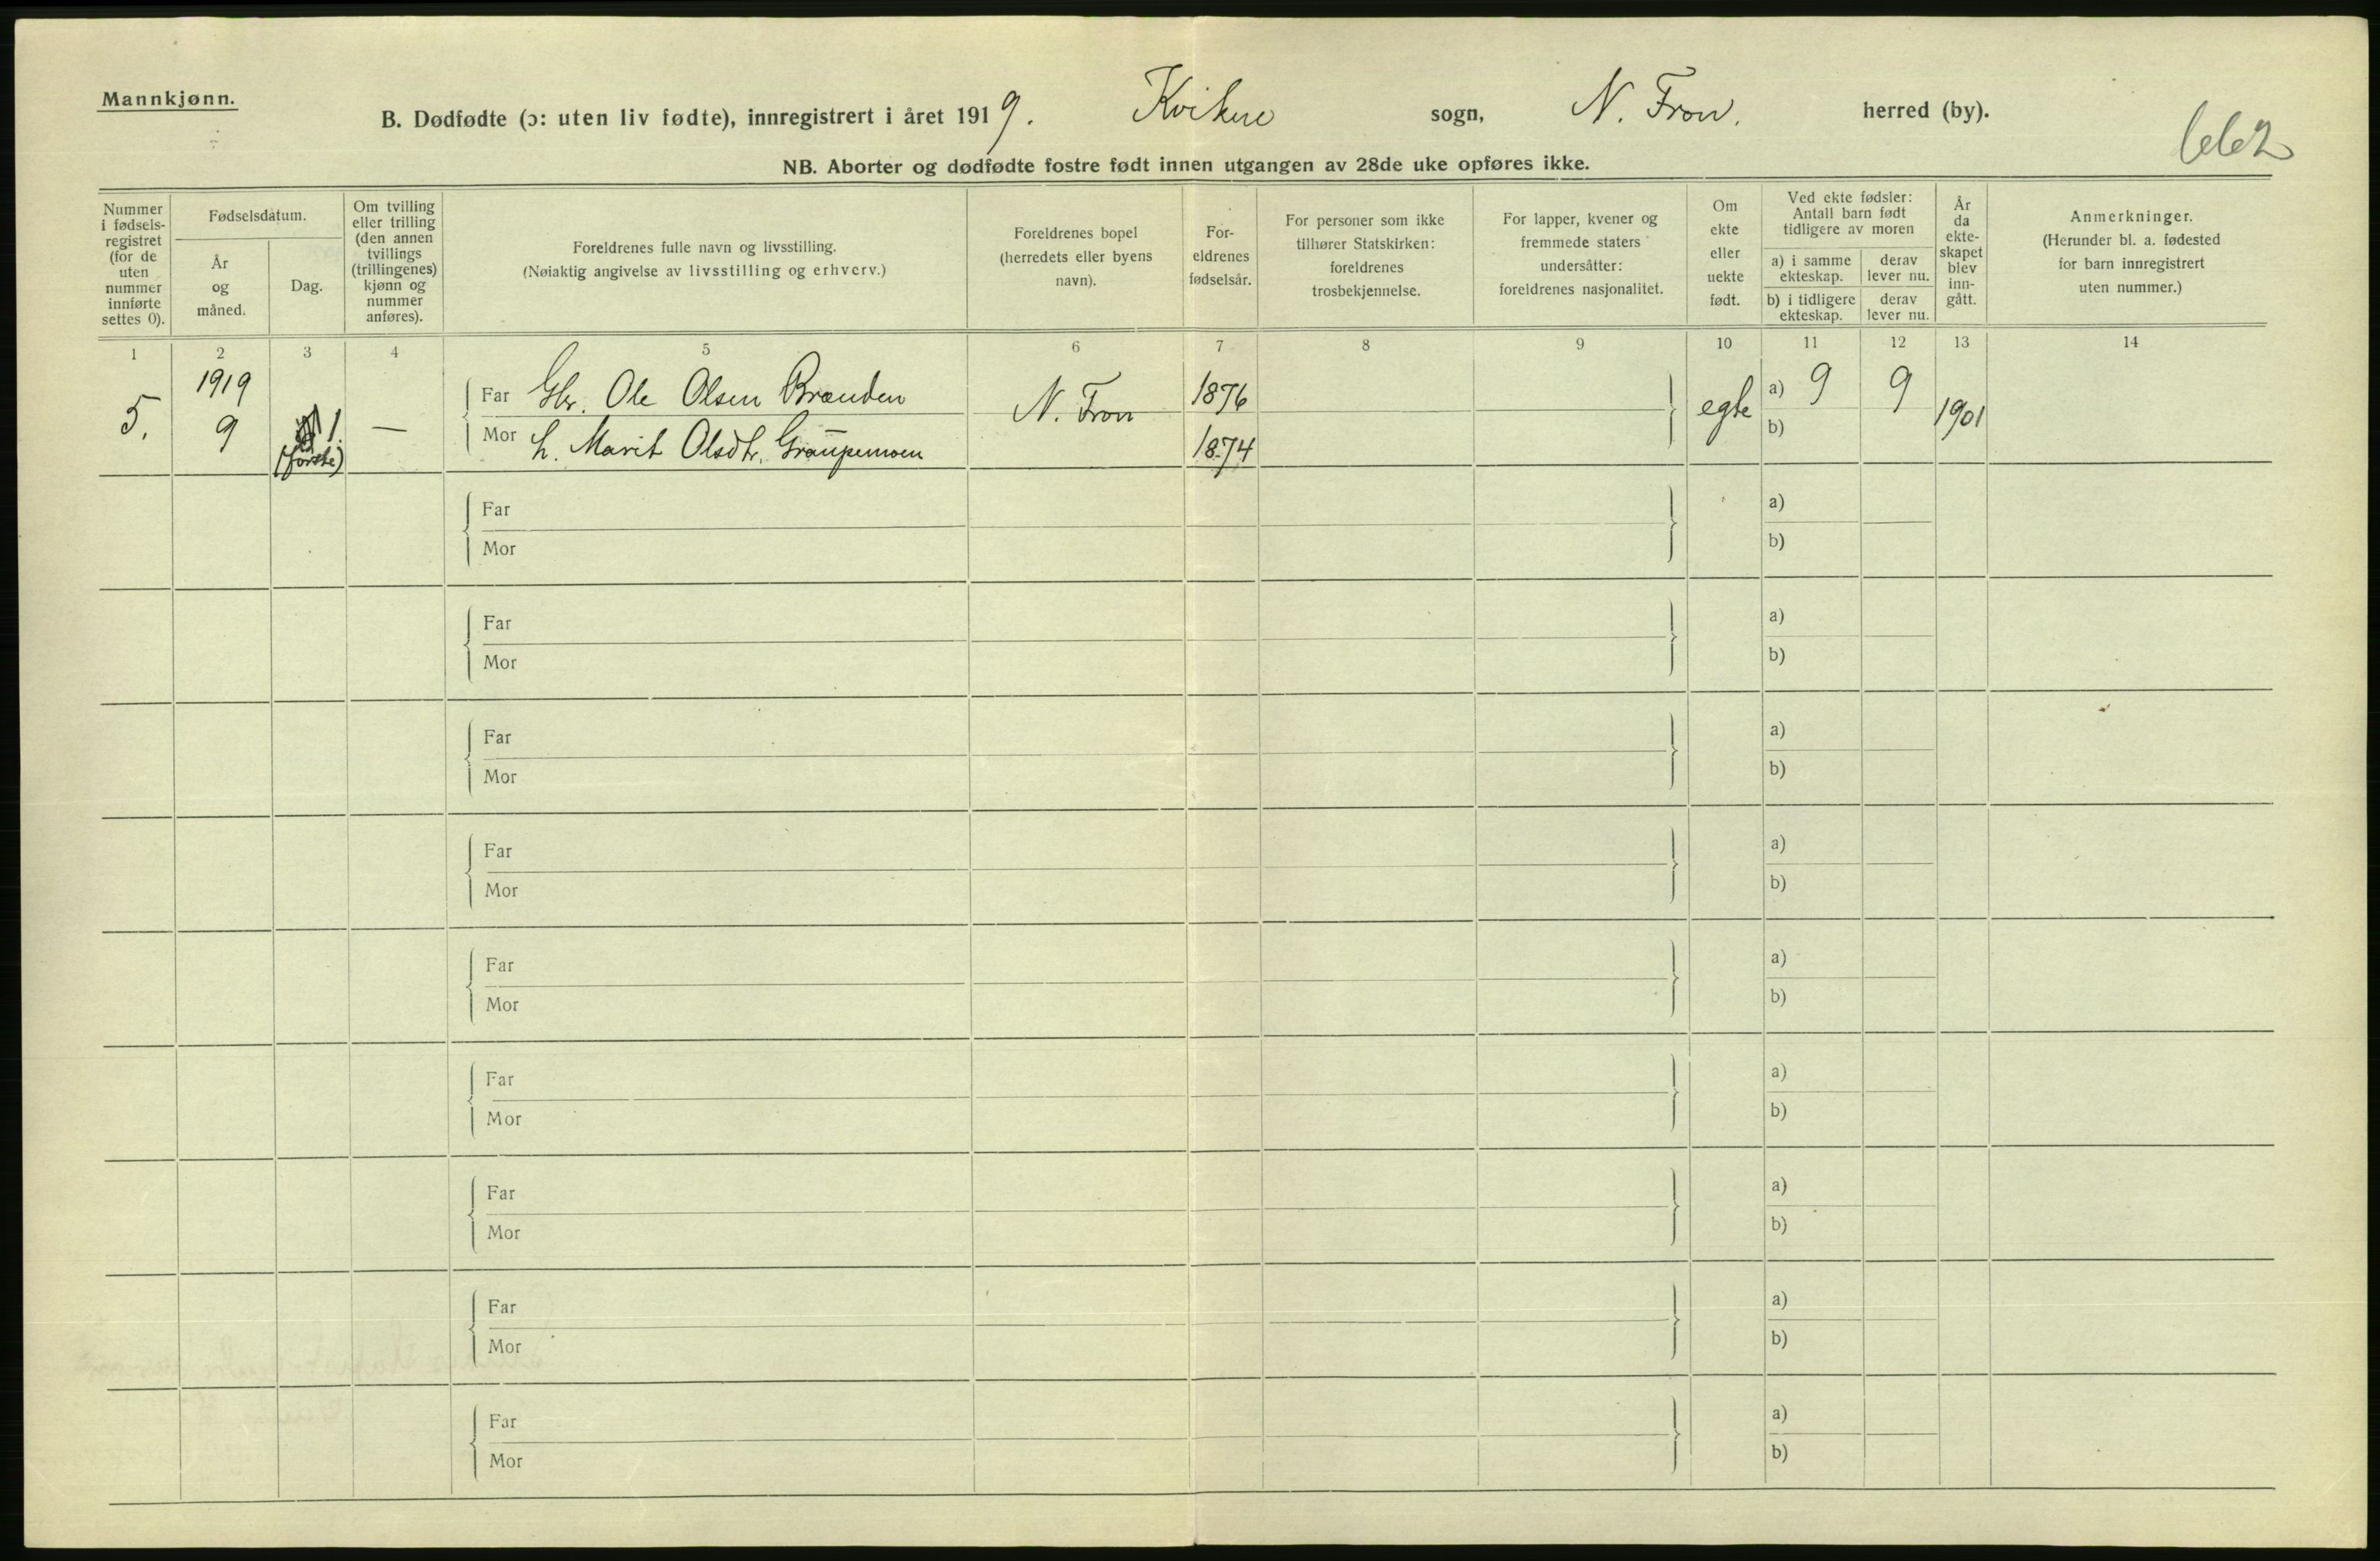 Mannkjønn.
B. Dødfødte (ɔ: uten liv fødte), innregistrert i året 1919. Kvikne sogn, N. Fron. herred (by).
662
NB. Aborter og dødfødte fostre født innen utgangen av 28de uke opføres ikke.
Nummer i fødsels-registret (for de uten nummer innførte settes 0).
Fødselsdatum.
År og måned.
Dag.
Om tvilling eller trilling (den annen tvillings (trillingenes) kjønn og nummer anføres).
Foreldrenes fulle navn og livsstilling.
(Nøiaktig angivelse av livsstilling og erhverv.)
Foreldrenes bopel (herredets eller byens navn).
For-eldrenes fødselsår.
For personer som ikke tilhører Statskirken: foreldrenes trosbekjennelse.
For lapper, kvener og fremmede staters undersåtter: foreldrenes nasjonalitet.
Om ekte eller uekte født.
Ved ekte fødsler: Antall barn født tidligere av moren
a) i samme ekteskap.
derav lever nu.
b) i tidligere ekteskap.
derav lever nu.
År da ekte-skapet blev inn-gått.
Anmerkninger.
(Herunder bl. a. fødested for barn innregistrert uten nummer.)
1 2 3 4 5 6 7 8 9 10 11 12 13 14
5. 1919 9 1. (første) —
Far Gbr. Ole Olsen Brænden N. Fron 1876 egte a) 9 9 1901
Mor h. Marit Olsdtr. Graupemoen 1874 b)
Far a)
Mor b)
Far a)
Mor b)
Far a)
Mor b)
Far a)
Mor b)
Far a)
Mor b)
Far a)
Mor b)
Far a)
Mor b)
Far a)
Mor b)
Far a)
Mor b)